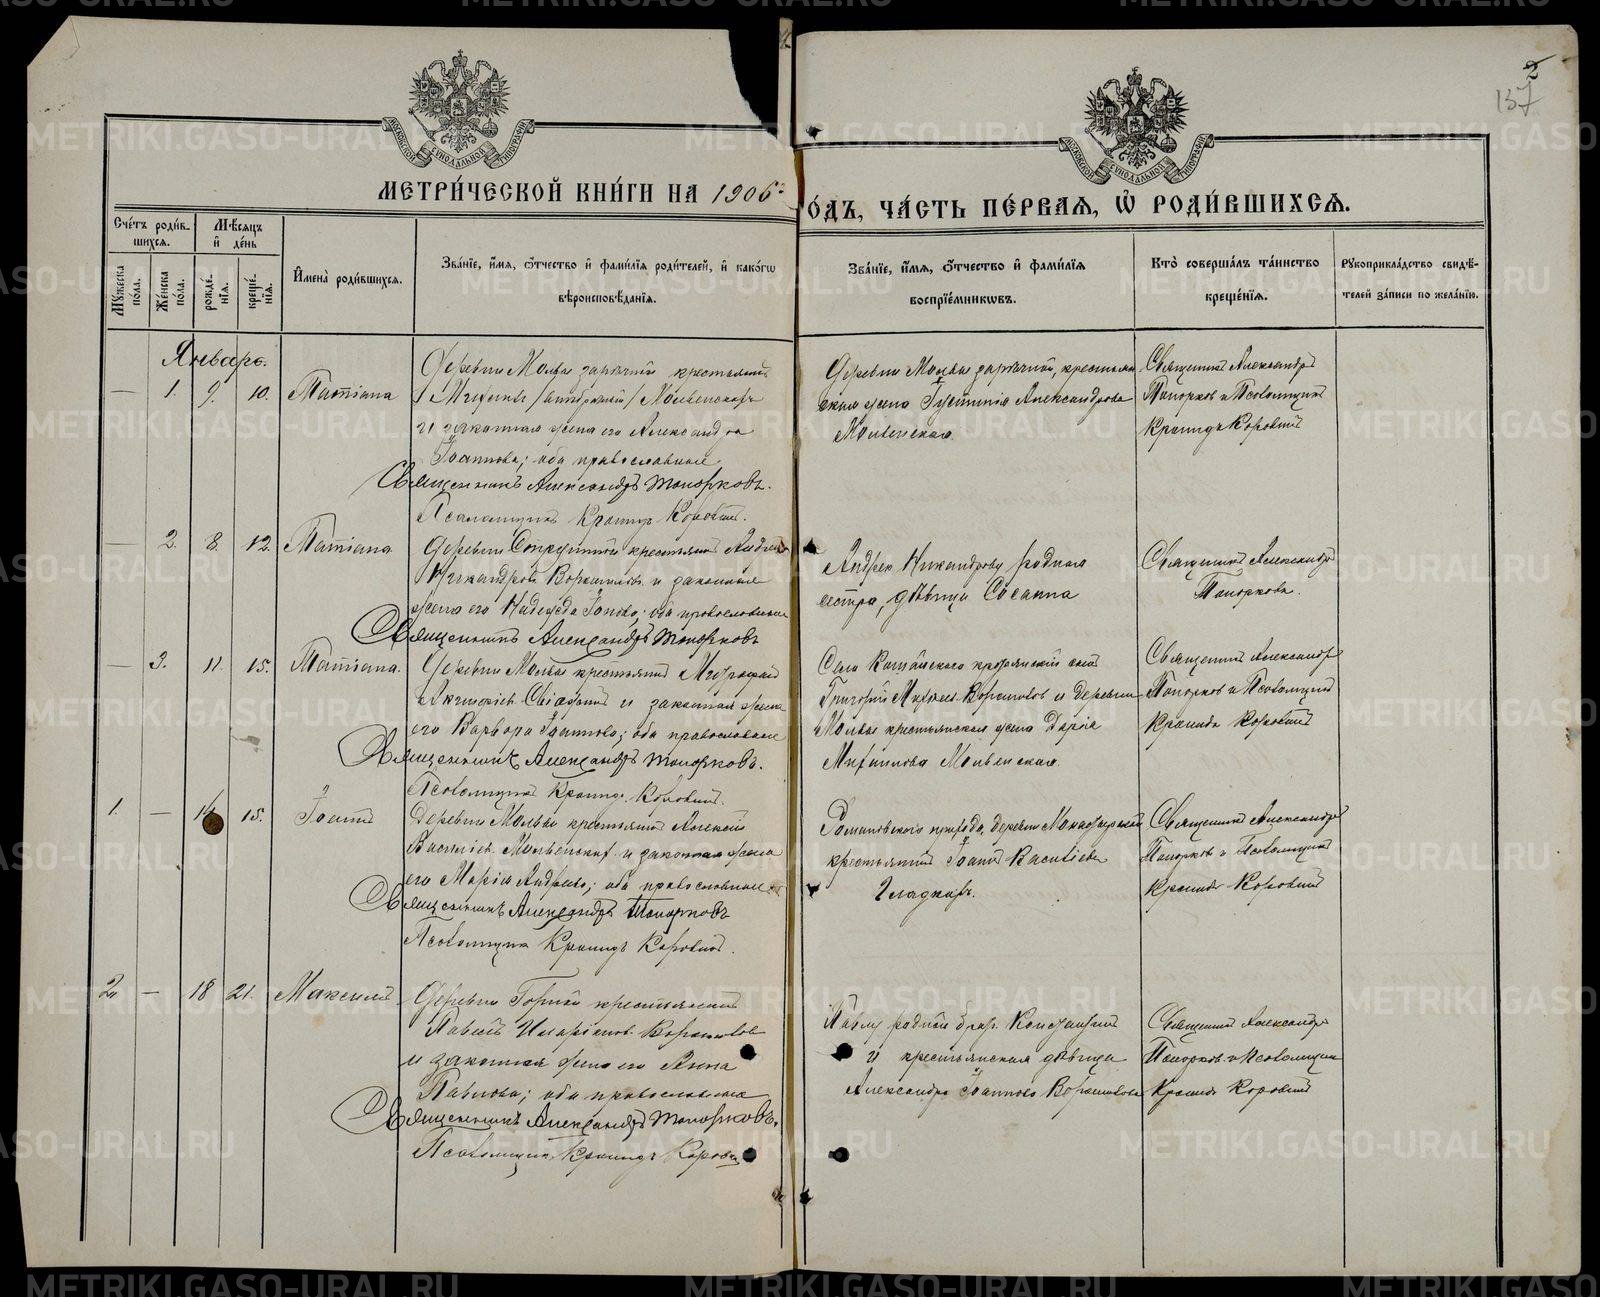 2
137
МОСКОВСКОЙ СѴНОДАЛЬНОЙ ТИПОГРАФІИ
МОСКОВСКОЙ СѴНОДАЛЬНОЙ ТИПОГРАФІИ
МЕТРИ́ЧЕСКОЙ КНИ́ГИ НА 1906
О́ДЪ, ЧА́СТЬ ПЕ́РВАЯ, Ѡ҆ РОДИ́ВШИХСѦ.
Сче́тъ роди́в-
шихсѧ.
Мѣ́сѧцъ
и҆ де́нь
Мꙋ́жеска
по́ла.
Же́нска
по́ла.
рожде́-
нїѧ.
креще́-
нїѧ.
И҆мена̀ роди́вшихсѧ.
Зва́нїе, и҆́мѧ, ѻ҆́тчество и҆ фами́лїѧ роди́телей, и҆ како́гѡ
вѣроисповѣ́данїѧ.
Зва́нїе, и҆́мѧ, ѻ҆́тчество и҆ фами́лїѧ
воспрїе́мникѡвъ.
Кто̀ соверша́лъ та́инство
креще́нїѧ.
Рꙋкоприкла́дство свидѣ́-
телей за́писи по жела́нїю.
Январь.
— 1. 9. 10. Татiана
Деревни Мольвы заречной крестьянинъ
и законная жена его Александра
Іоаннова; оба православные.
Священникъ Александръ Топорковъ.
Псаломщикъ Кронидъ Коровинъ.
Деревни Мольвы заречной, крестьян
ская жена Іустинія Александрова
Мольвенская.
Священникъ Александръ
Топорковъ и Псаломщикъ
Кронидъ Коровинъ
— 2. 8. 12. Татiана
Деревни крестьянинъ Андрей
Никандровъ Ворошиловъ и законная
жена его Надежда; оба православные
Священникъ Александръ Топорковъ
Андрея Никандрова родная
сестра, дѣвица Сосанна
Священникъ Александръ
Топорковъ.
— 3. 11. 15. Татiана.
Деревни Мольвы крестьянинъ
и законная жена
его Варвара Іоаннова; оба православные
Священникъ Александръ Топорковъ.
Псаломщикъ Кронидъ Коровинъ.
Села крестьянскій сынъ
Григорій Ворошиловъ и деревни
Мольвы крестьянская жена Дарія
Михаилова Мольвенская.
Священникъ Александръ
Топорковъ и Псаломщикъ
Кронидъ Коровинъ
1. — 15. Іоаннъ
Деревни Мольвы крестьянинъ Алексій
Васильевъ Мольвенскихъ и законная жена
его Марія Андреева; оба православные
Священникъ Александръ Топорковъ
Псаломщикъ Кронидъ Коровинъ.
Романовскаго прихода, деревни
крестьянинъ Іоаннъ Васильевъ
Гладкихъ.
Священникъ Александръ
Топорковъ и Псаломщикъ
Кронидъ Коровинъ
2. — 18 21. Максимъ
Деревни Горной крестьянинъ
Павелъ Иларіоновъ Ворошиловъ
и законная жена его Анна
Павлова; оба православные
Священникъ Александръ Топорковъ.
Псаломщикъ Кронидъ Коровинъ
Павлу родной братъ Константинъ
и крестьянская дѣвица
Александра Іоаннова Ворошилова
Священникъ Александръ
Топорковъ и Псаломщикъ
Кронидъ Коровинъ
METRIKI.GASO-URAL.RU